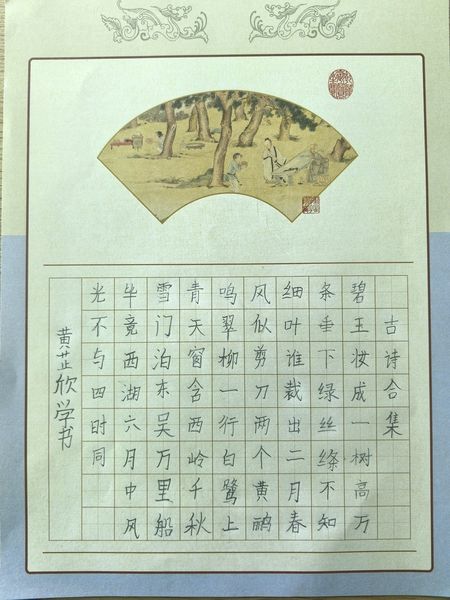 古诗合集
碧玉妆成一树高万
条垂下绿丝绦不知
细叶谁裁出二月春
风似剪刀两个黄鹂
鸣翠柳一行白鹭上
青天窗含西岭千秋
雪门泊东吴万里船
毕竟西湖六月中风
光不与四时同
黄芷欣学书